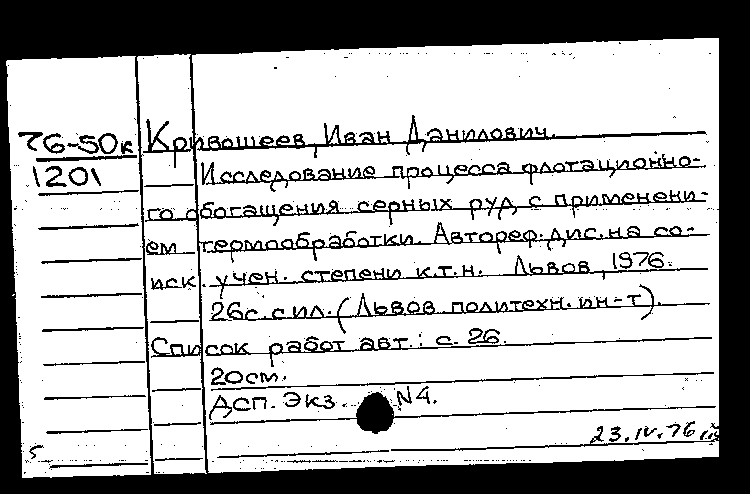 76-50к Кривошеев, Иван Данилович.
1201 Исследование процесса флотационно-
го обогащения серных руд с применени-
ем термообработки. Автореф. дис. на со-
иск. учен. степени к.т.н. Львов, 1976.
26с. с ил. (Львов. политехн. ин-т).
Список работ авт.: с. 26.
20см.
ДСП. Экз. N4.
23.IV.76
5